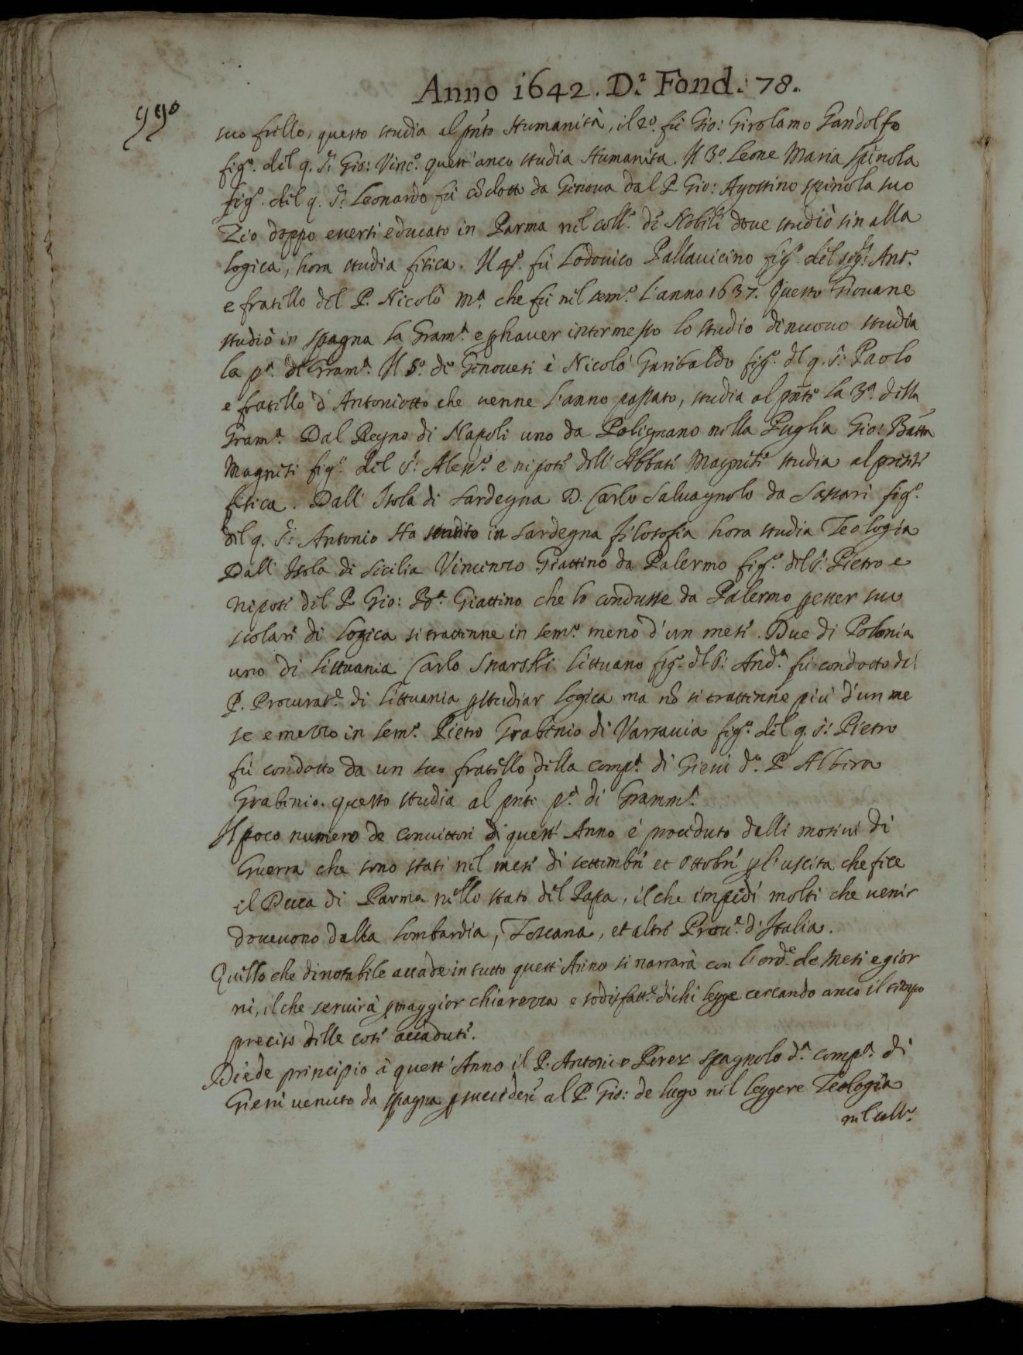 Anno 1642. D.ª Fond. 78.
990
suo frello, questo studia al pnte Humanità, il 2º. fù Gio: Girolamo Gandolfo
figº. del q. S.r Gio: Vincº. quest'anco studia Humanita. Il 3º Leone Maria Spinola
figº. del q. S.r Leonardo fù cōdotto da Genoua dal P. Gio: Agostino Spinola suo
Zio doppo esserti educato in Parma nel coll.º de Nobili doue studiò sin alla
logica, hora studia fisica. Il 4º. fù Lodouico Pallauicino figº del sigr. Ant.º
e fratello del P. Nicolò Mª. che fù nel sem.º l'anno 1637. Questo Giouane
studiò in Spagna la Gram.ª e p hauer intermesso lo studio dinuouo studia
la pª. de Gram.ª Il 5º. de Genouesi è Nicolò Garibaldo figº. del q. S.r Paolo
e fratello d'Antoniotto che uenne l'anno passato, studia al pnte la 3ª. della
Gram.ª Dal Regno di Napoli uno da Polignano nella Puglia Gio: Batta
Magnesi figº. del S.r Aless.º e nipote dell'Abbate Magnesi studia al presete
fisica. Dall'Isola di Sardegna D. Carlo Saluagnolo da Sassari figº.
del q. S.r Antonio Ha studito in Sardegna filosofia hora studia Teologia
Dall'Isola di Sicilia Vincenzo Giattino da Palermo figº. del S.r Pietro e
nipote del P. Gio: Bª. Giattino che lo condusse da Palermo p esser suo
scolare di logica si trattenne in sem.º meno d'un mese. Due di Polonia
uno di littuania Carlo Snarski littuano figº. del S.r And.ª fù condotto del
P. Procurat.e di littuania p studiar logica ma nō si trattenne più d'un me
se e mezzo in sem.º Pietro Grabinio di Varsauia figº. del q. S.r Pietro
fù condotto da un suo fratello della comp.ª di Giesù dº. P. Albira
Grabinio. questo studia al pnte pª. di Gramm.ª
Il poco numero de conuittori di quest'Anno è proceduto dalli motiui di
Guerra che sono stati nel mese di settembre et Ottobre p l'uscita che fece
il Duca di Parma nello stato del Papa, il che impedì molti che uenir
doueuono dalla lombardia, Toscana, et altre Prou.e d'Italia.
Quello che di notabile accade in tutto quest'Anno si narrarà con l'ord.e de Mesi e gior
ni, il che seruirà p maggior chiarezza e sodisfatt.e di chi legge cercando anco il tempo
preciso delle cose accadute.
Diede principio à quest'Anno il P. Antonio Perez Spagnolo d.ª comp.ª di
Giesù uenuto da Spagna p succedere al P. Gio: de lugo nel leggere Teologia
nel coll.º